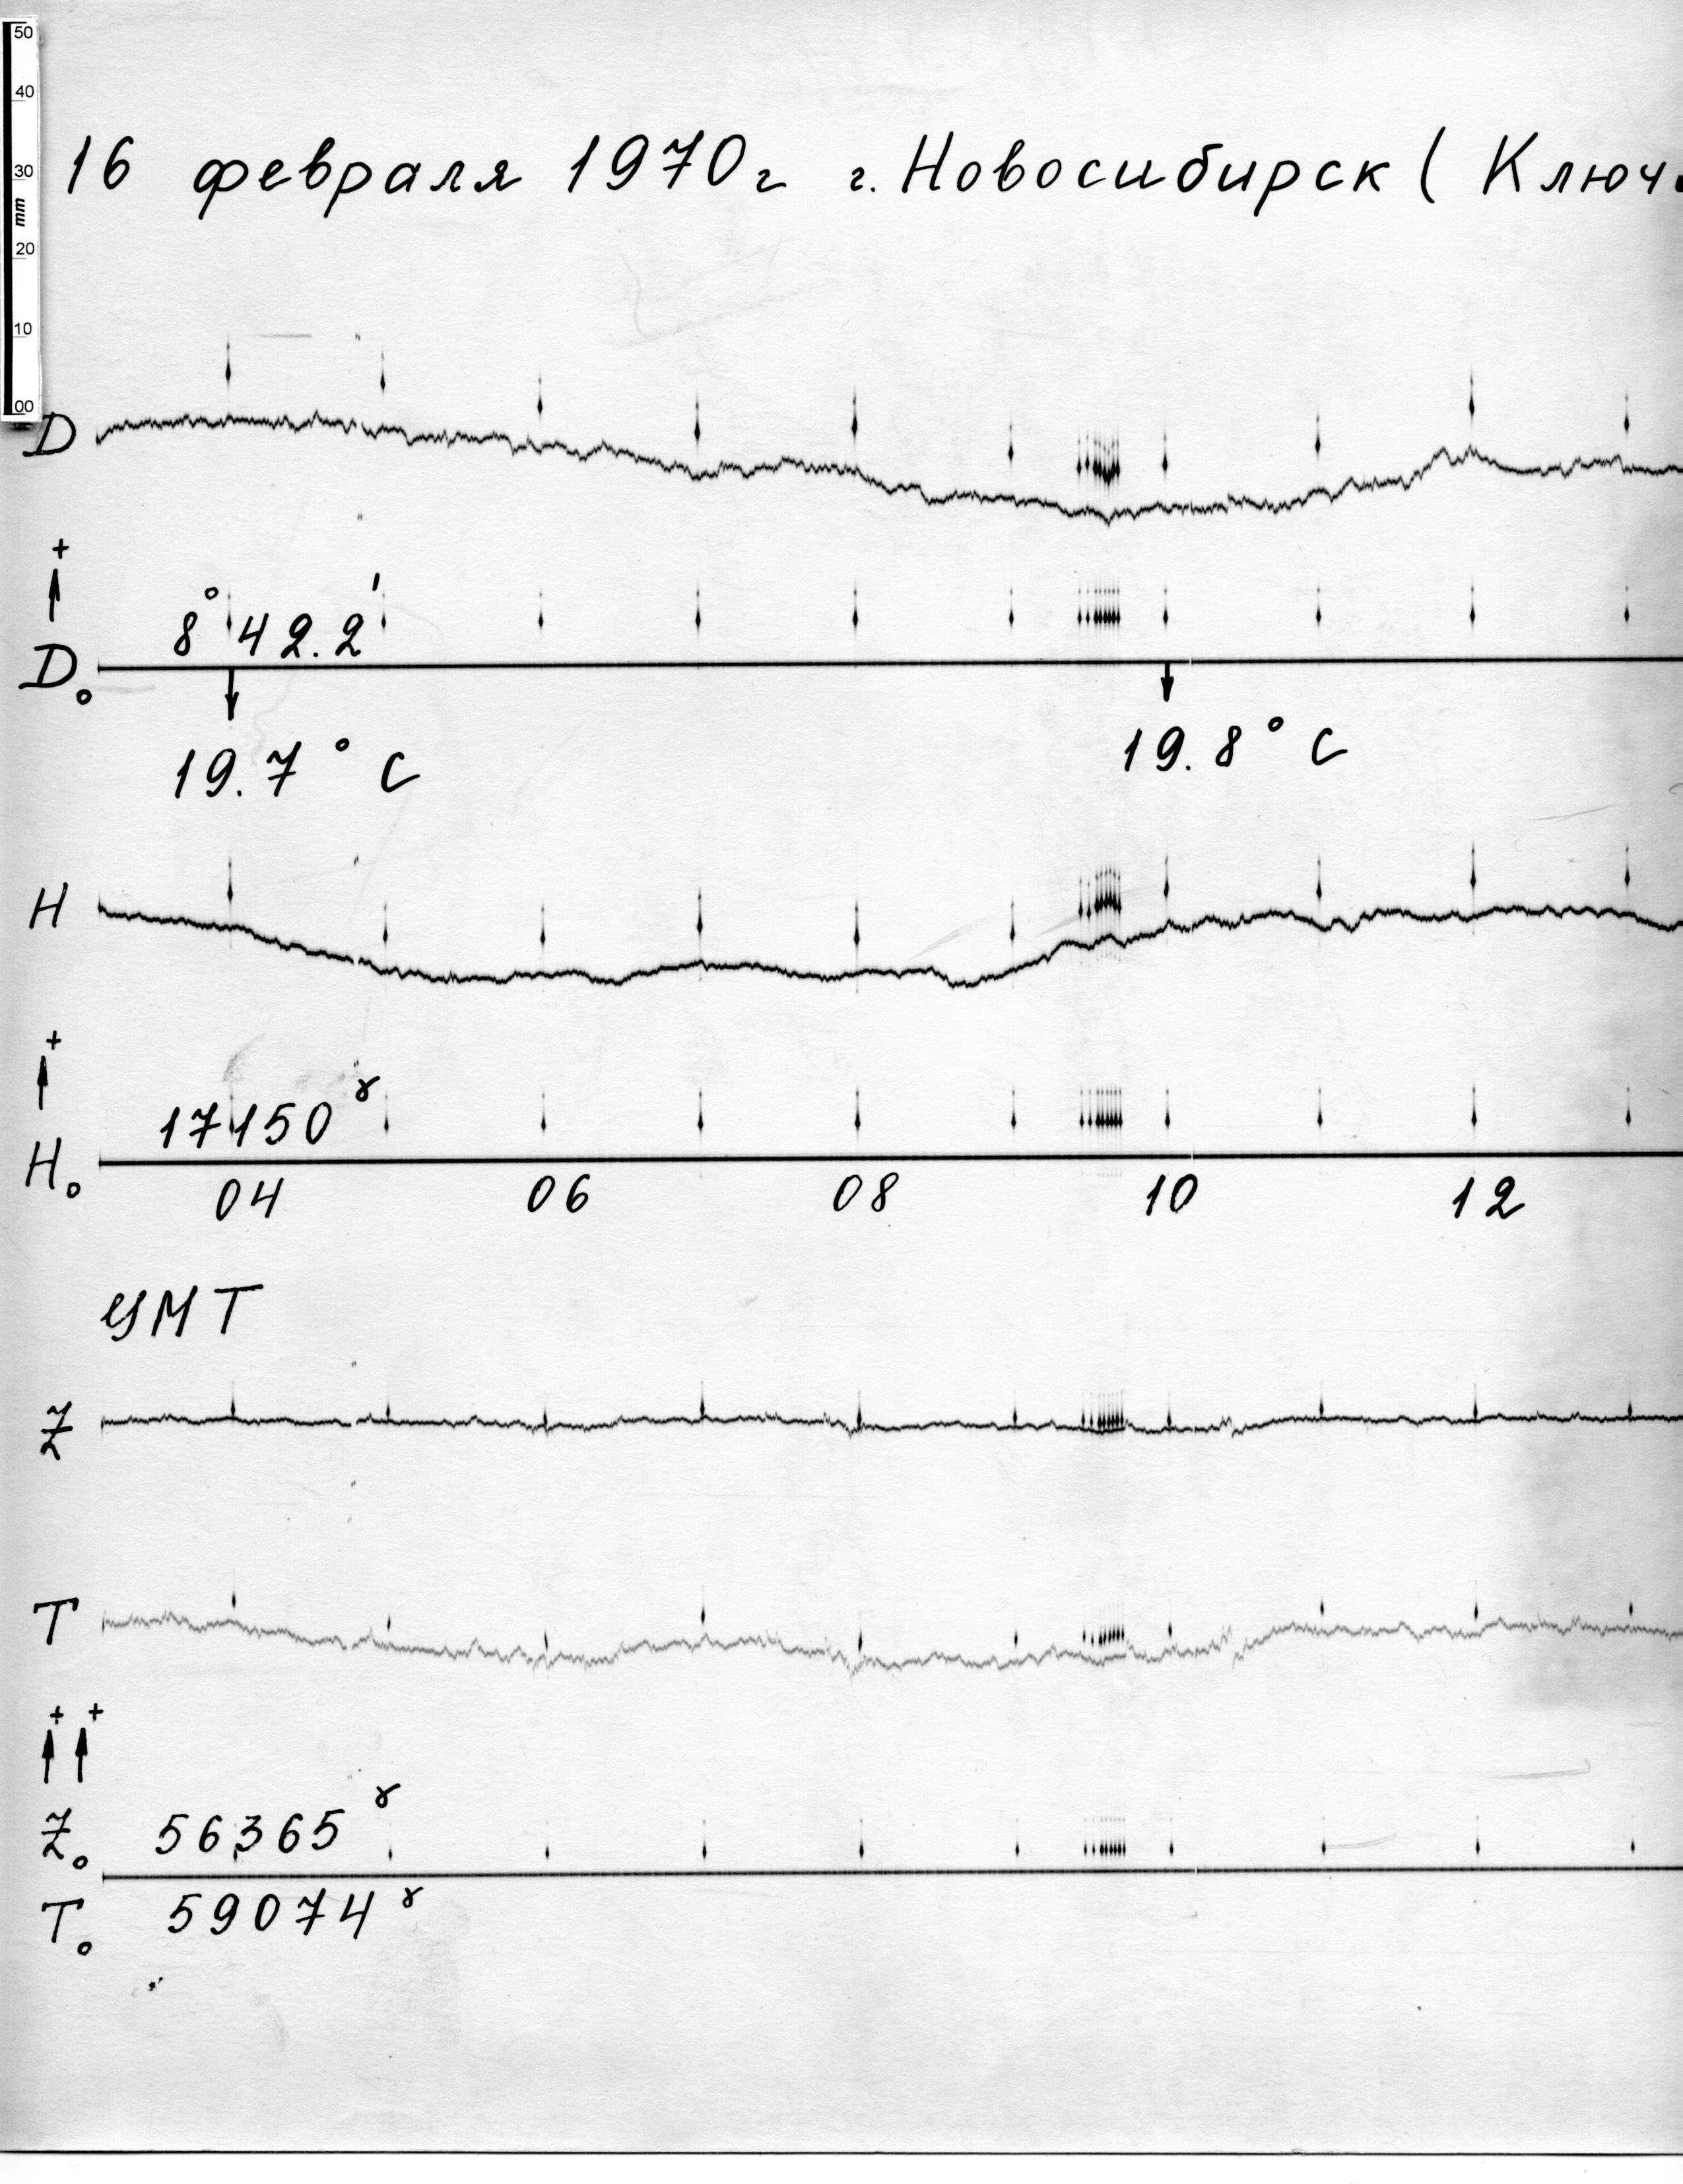 50
40
30
mm
20
10
00
16 февраля 1970г г. Новосибирск ( Ключ
D
+
8° 42.2'
D₀
19.7 °C
19.8 °C
H
+
17150 γ
H₀
04 06 08 10 12
УМТ
Z
T
+ +
Z₀ 56365 γ
T₀ 59074 γ